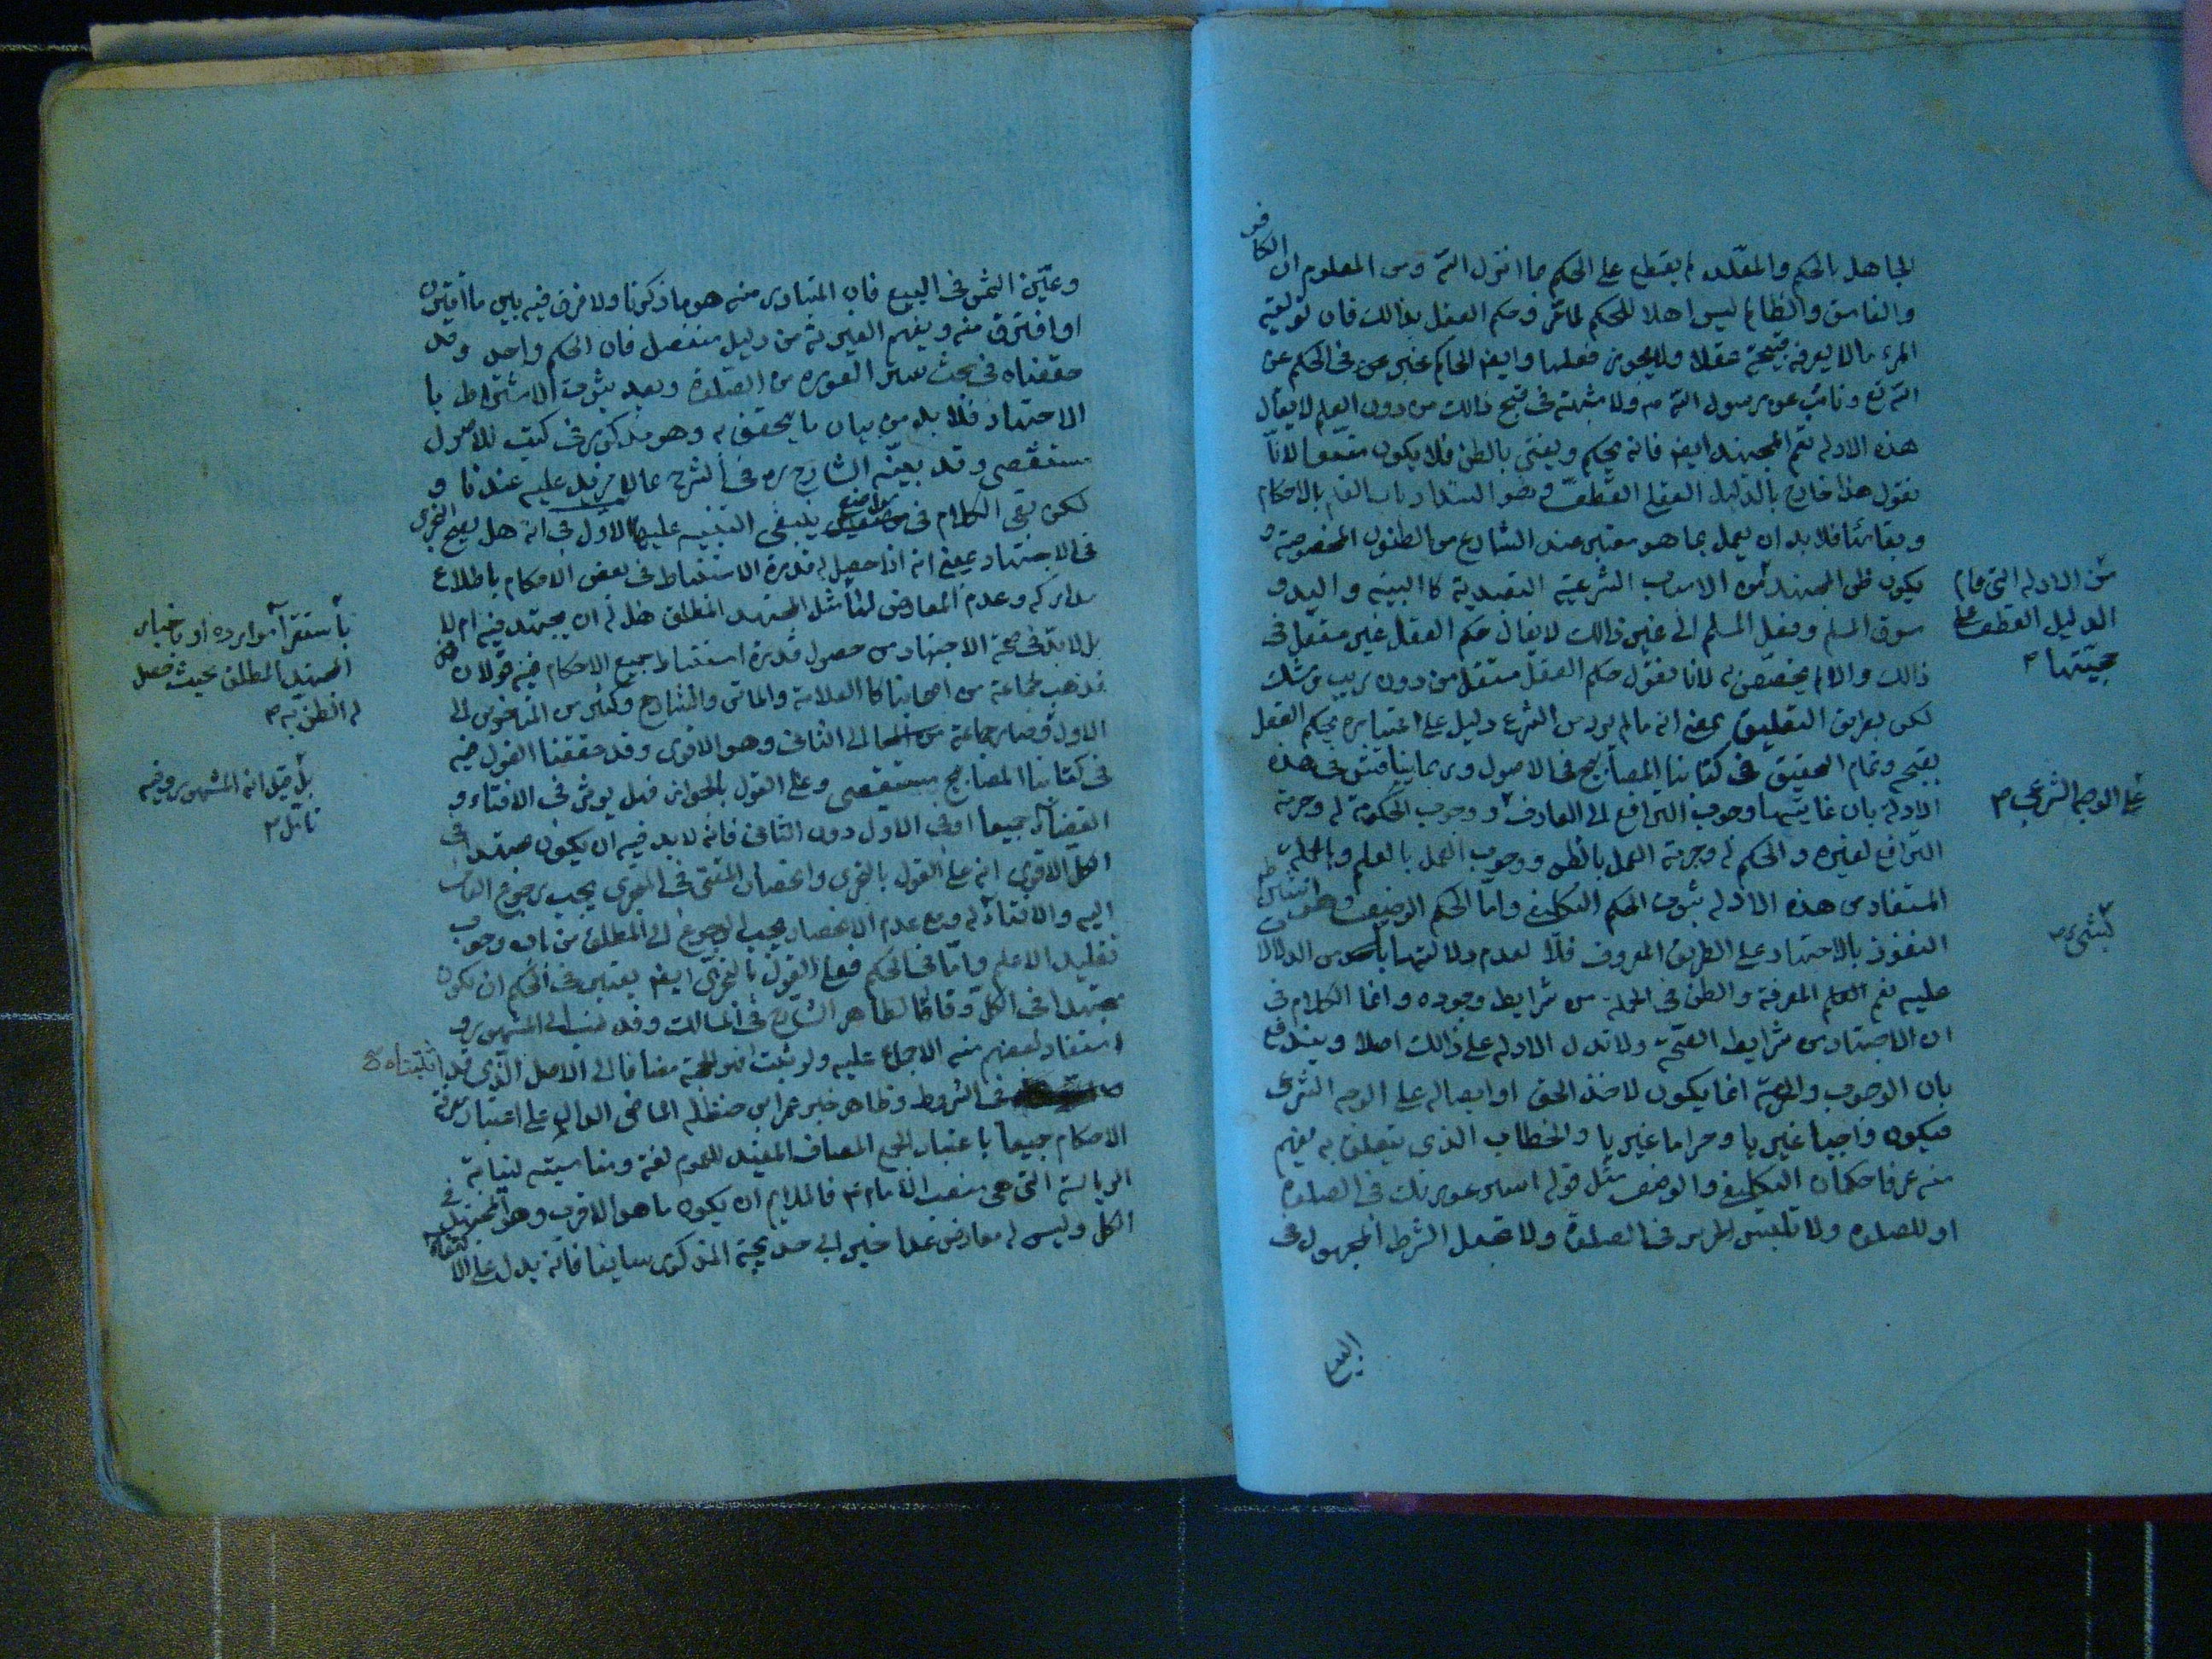 الجاهل بالحكم والمقلد لم يقطع على الحكم ما انزل الله ومن المعلوم ان الكافر
والفاسق والظالم ليس اهلا للحكم لمامر وحكم العقل بذالك فان تولية
المرء مالا يعرفه قبيحة عقلا ولا يجوز فعلها وايض الحاكم مخبر عن في الحكم عن
الله تع ونائب عن رسول الله ص ولا شبهة في قبح ذالك من دون العلم لا يقال
هذه الادلة تعم المجتهد ايض فانه يحكم ويفتى بالظن فلا يكون متبعا لانا
نقول هذا خارج بالدليل العقلى القطعى وهو انسداد باب العلم بالاحكام
وبقائنا فلا بد ان يعمل بما هو معتبر عند الشارع من الظنون المخصوصة و
يكون ظن المجتهد من الاسباب الشرعية التعبدية كالبينة واليد و
سوق المسلم وفعل المسلم الى غير ذالك لا يقال حكم العقل غير مستقل في
ذالك والا لم يخصص له لانا نقول حكم العقل مستقل من دون ريب وشك
لكن بطريق التعليق بمعنى انه مالم يرد من الشرع دليل على اعتباره يحكم العقل
بقبحه وتمام التحقيق في كتابنا المصابيح في الاصول وربما يناقش في هذه
الادلة بان غايتها وجوب الترافع الى العارف ووجوب الحكومة له وحرمة
الترافع لغيره والحكم له وحرمة العمل بالظن ووجوب العمل بالعلم وبالجملة
المستفاد من هذه الادلة ثبوت الحكم التكليفى واما الحكم الوضعى وهو
النفوذ بالاجتهاد على الطريق المعروف فلا لعدم دلالتها من الدلالا
عليه نعم العلم المعرفة والظن في الجملة من شرايط وجوده وانما الكلام في
ان الاجتهاد من شرايط الصحة ولا تدل الادلة على ذالك اصلا ويندفع
بان الوجوب والحرمة انما يكون لاخذ الحق او ايصاله على الوجه الشرعى
فيكون واجبا غيريا وحراما غيريا والخطاب الذى يتعلق به يفهم
منه عرفا حكمان التكليفى والوضعى مثل قوله استر عورتك في الصلوة
او للصلوة ولا تلبس الحرير في الصلوة ولا تجعل الشرط المجهول في
البيع
من الادلة التى قام
الدليل القطعى على
حجيتها
على الوجه الشرعى ص
كبشئ ص
وعين الثمن في البيع فان المتبادر منه هو ما ذكرنا ولا فرق فيه بين ما اقترن
او افترق منه ويفهم الغيرية من دليل منفصل فان الحكم واحد وقد
حققناه في بحث ستر العورة من الصلوة وبعد ثبوت الاشتراط با
الاجتهاد فلا بد من بيان ما يتحقق به وهو مذكور في كتب الاصول
مستقصى وقد بينه الشارح ره في الشرح بما لا مزيد عليه عندنا و
لكن بقى الكلام في مواضع ينبغى التنبيه عليها الاول في انه هل يصح التجزى
في الاجتهاد بمعنى انه اذا حصل له قدرة الاستنباط في بعض الاحكام باطلاع
مداركه وعدم المعارض لها مثل المجتهد المطلق هل له ان يجتهد فيه ام لا
بل لا بد في صحة الاجتهاد من حصول قدرة استنباط جميع الاحكام فيه قولان
فذهب جماعة من اصحابنا كالعلامة والماتن والشارح وكثير من المتاخرين الى
الاول وصار جماعة الى الثانى وهو الاقوى وقد حققنا القول فيه
في كتابنا المصابيح مستقصى وعلى القول بالجواز فهل يؤثر في الافتاء و
القضاء جميعا او في الاول دون الثانى فانه لا بد فيه ان يكون مجتهدا في
الكل الاقوى انه على القول بالتجزى وانحصار المفتى في المتجزى يجب رجوع
اليه والافتاء له ومع عدم الانحصار يجب الرجوع الى المطلق من باب وجوب
تقليد الاعلم واما في الحكم فعلى القول بالتجزى ايض يعتبر في الحكم ان يكون
مجتهدا في الكل وفاقا لظاهر الشارح في المسالك وقد نسب الى المشهور و
استفاد بعضهم منه الاجماع عليه ولو ثبت فهو الحجة مضافا الى الاصل الذى قد اثبتناه
في الشروط وظاهر خبر عمر بن حنظلة الماضى الدال على اعتبار معرفة
الاحكام جميعا باعتبار الجمع المضاف المفيد للعموم لغة ومناسبته لنيابة
الرياسة التى هى منصب الامام ع فاللازم ان يكون ما هو الاقرب وهو المجتهد في
الكل وليس له معارض عدا خبر ابى خديجة المذكور سابقا فانه يدل على
باستقراء موارده او باخبار
المجتهد المطلق بحيث حصل
له الظن به
بل قيل انه المشهور وفيه
تامل